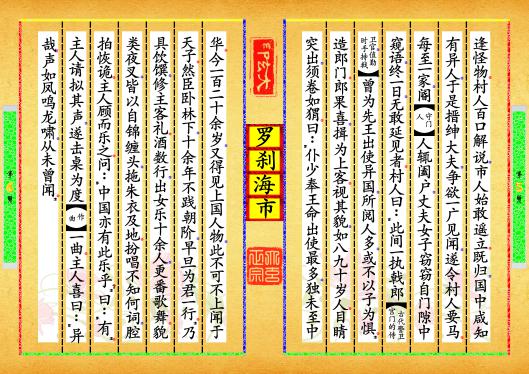 逢怪物村人百口解说市人始敢遥立既归国中咸知
有异人于是搢绅大夫争欲一广见闻遂令村人要马
每至一家阍【守门人】人辄阖户丈夫女子窃窃自门隙中
窥语终一日无敢延见者村人曰：此间一执戟郎【古代警卫宫门的侍
卫官值勤时手持戟】曾为先王出使异国所阅人多或不以子为惧
造郎门郎果喜揖为上客视其貌如八九十岁人目睛
突出须卷如猬曰：仆少奉王命出使最多独未至中
罗刹海市
华今一百二十余岁又得见上国人物此不可不上闻于
天子然臣卧林下十余年不践朝阶早旦为君一行乃
具饮馔修主客礼酒数行出女乐十余人更番歌舞貌
类夜叉皆以白锦缠头拖朱衣及地扮唱不知何词腔
拍恢诡主人顾而乐之问：中国亦有此乐乎曰：有
主人请拟其声遂击桌为度【作曲】一曲主人喜曰：异
哉声如凤鸣龙啸从未曾闻